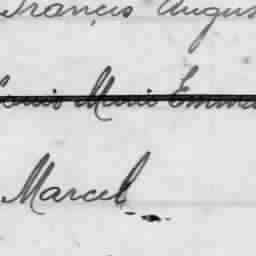 Francis Augus
Louis Marie Emma
Marcel